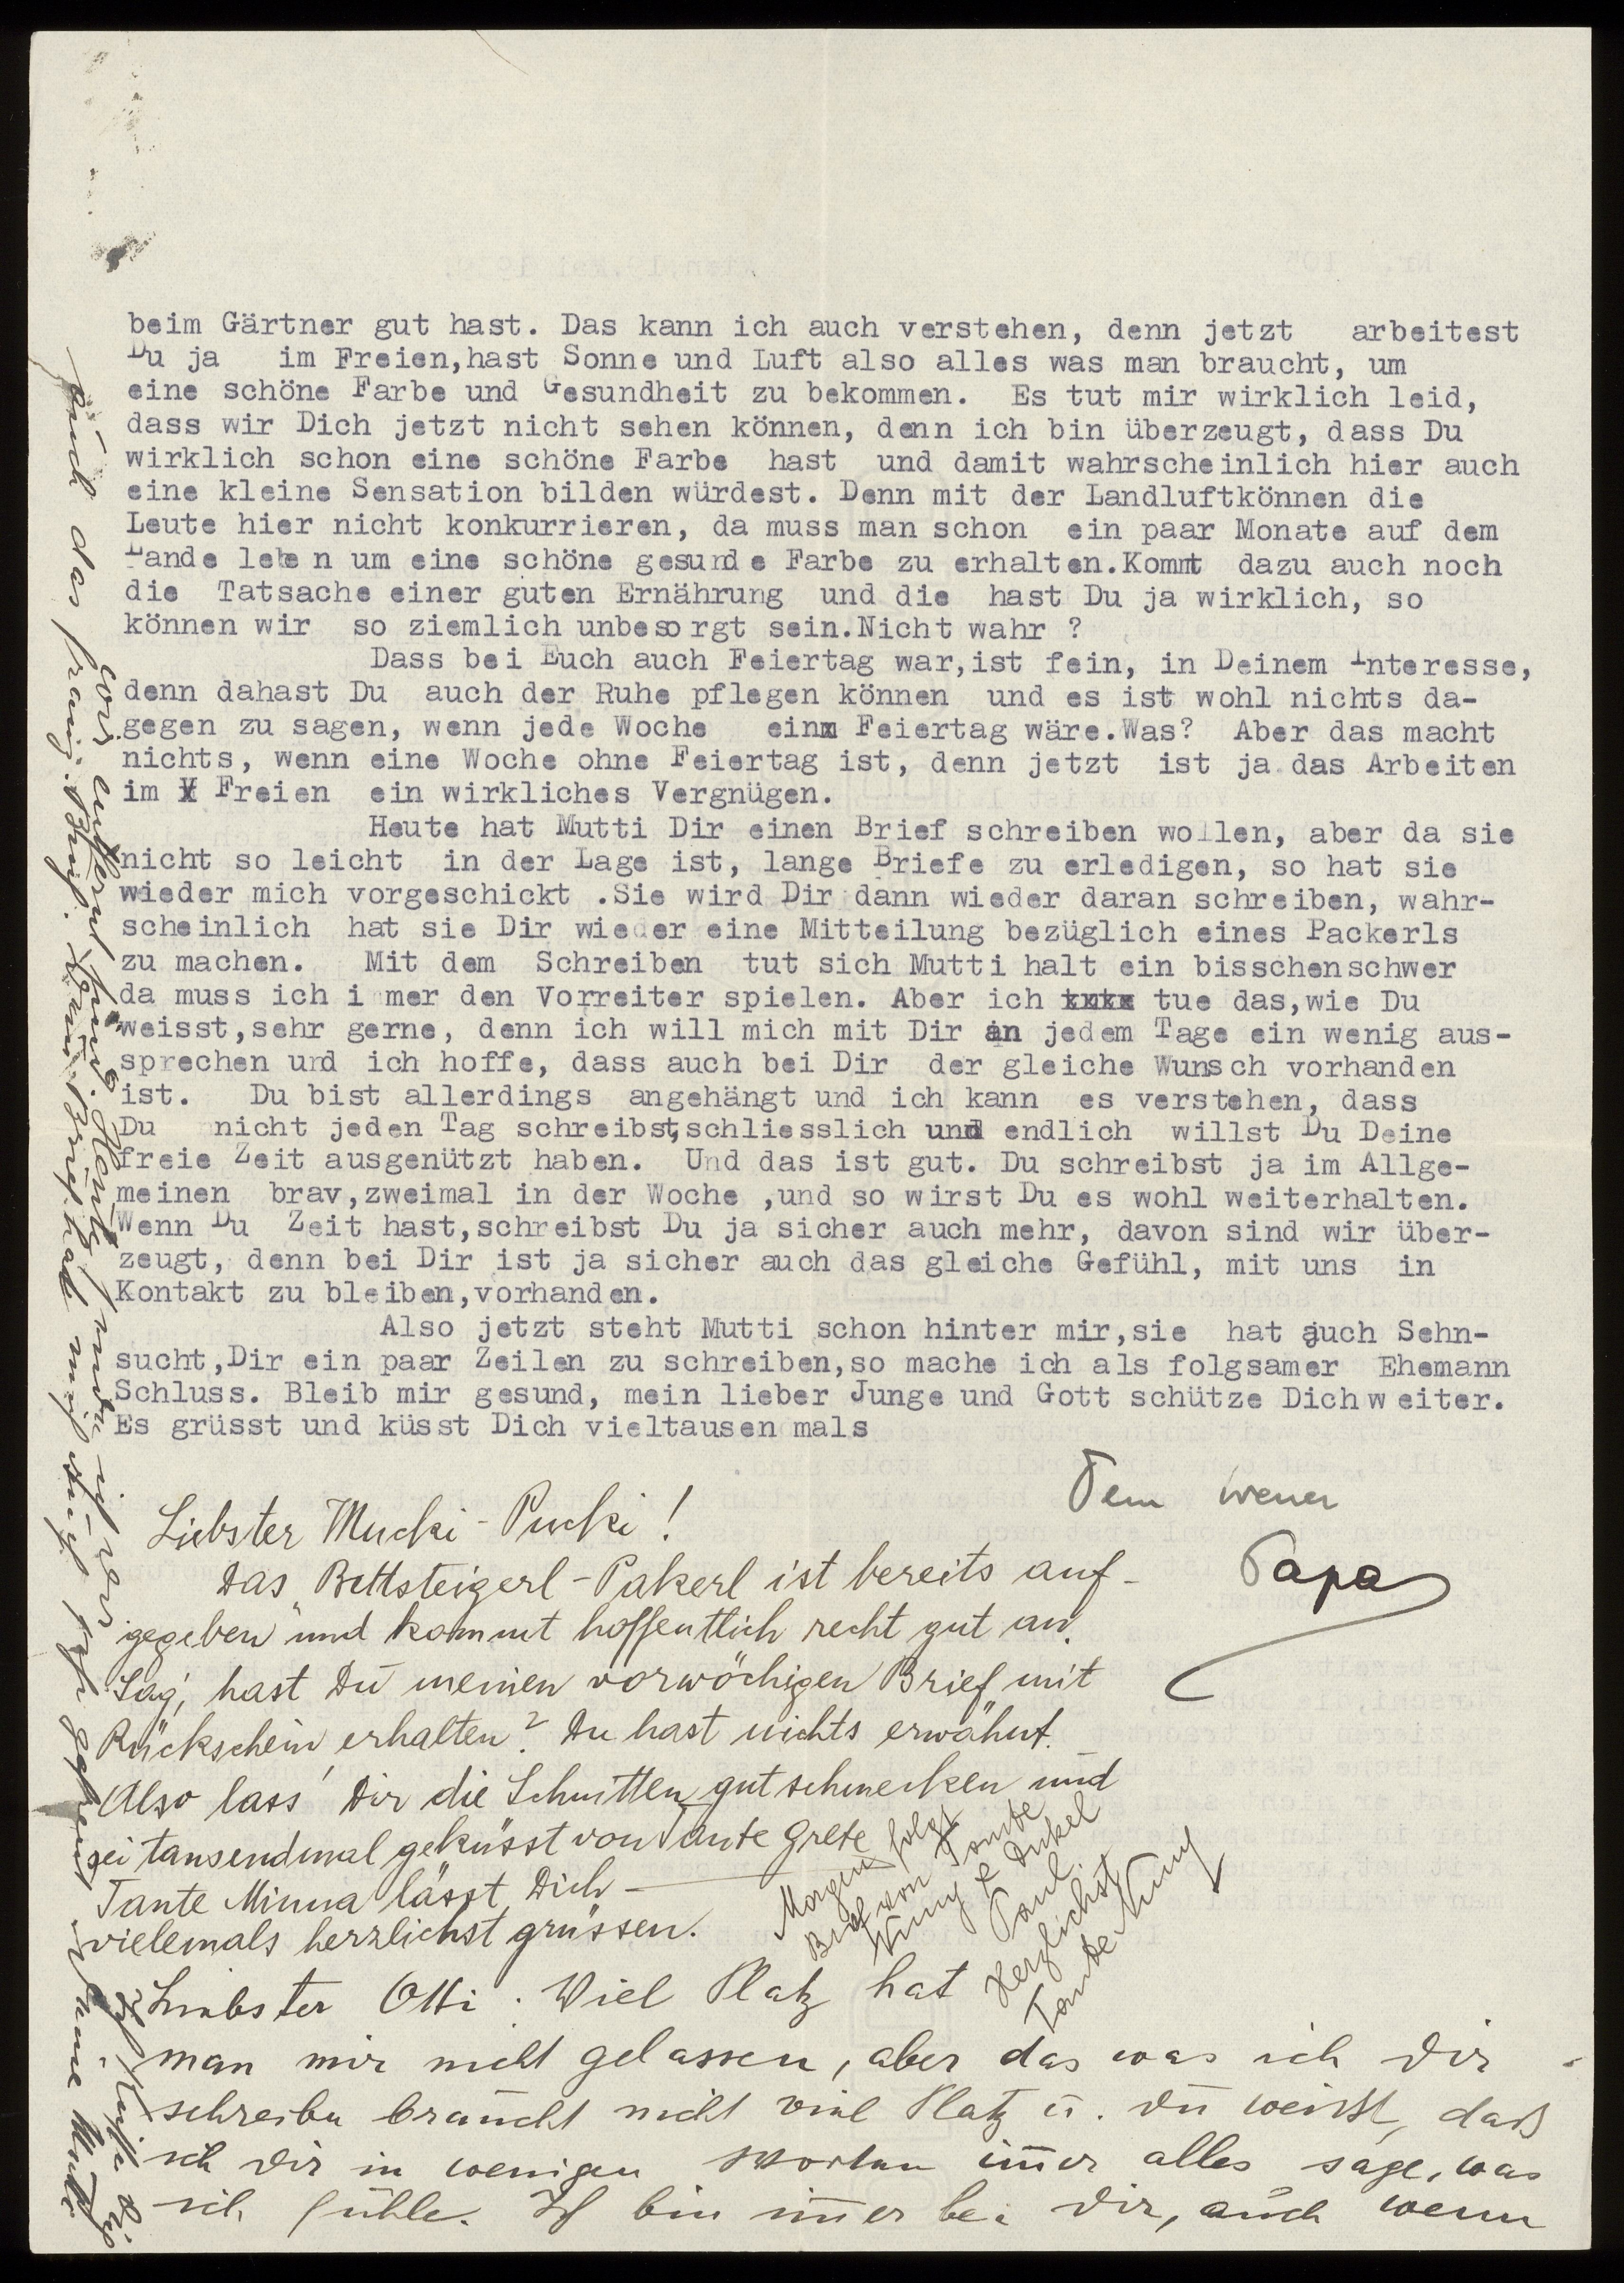 beim Gärtner gut hast. Das kann ich auch verstehen, denn jetzt arbeitest
Du ja im Freien,hast Sonne und Luft also alles was man braucht, um
eine schöne Farbe und Gesundheit zu bekommen. Es tut mir wirklich leid,
dass wir Dich jetzt nicht sehen können, denn ich bin überzeugt, dass Du
wirklich schon eine schöne Farbe hast und damit wahrscheinlich hier auch
eine kleine Sensation bilden würdest. Denn mit der Landluftkönnen die
Leute hier nicht konkurrieren, da muss man schon ein paar Monate auf dem
Lande leben um eine schöne gesunde Farbe zu erhalten.Kommt dazu auch noch
die Tatsache einer guten Ernährung und die hast Du ja wirklich, so
können wir so ziemlich unbesorgt sein.Nicht wahr ?
Dass bei Euch auch Feiertag war,ist fein, in Deinem Interesse,
denn dahast Du auch der Ruhe pflegen können und es ist wohl nichts da-
gegen zu sagen, wenn jede Woche ein Feiertag wäre.Was? Aber das macht
nichts, wenn eine Woche ohne Feiertag ist, denn jetzt ist ja das Arbeiten
im Freien ein wirkliches Vergnügen.
Heute hat Mutti Dir einen Brief schreiben wollen, aber da sie
nicht so leicht in der Lage ist, lange Briefe zu erledigen, so hat sie
wieder mich vorgeschickt .Sie wird Dir dann wieder daran schreiben, wahr-
scheinlich hat sie Dir wieder eine Mitteilung bezüglich eines Packerls
zu machen. Mit dem Schreiben tut sich Mutti halt ein bisschenschwer
da muss ich i mer den Vorreiter spielen. Aber ich tue das,wie Du
weisst,sehr gerne, denn ich will mich mit Dir an jedem Tage ein wenig aus-
sprechen und ich hoffe, dass auch bei Dir der gleiche Wunsch vorhanden
ist. Du bist allerdings angehängt und ich kann es verstehen, dass
Du nicht jeden Tag schreibst,schliesslich und endlich willst Du Deine
freie Zeit ausgenützt haben. Und das ist gut. Du schreibst ja im Allge-
meinen brav,zweimal in der Woche ,und so wirst Du es wohl weiterhalten.
Wenn Du Zeit hast,schreibst Du ja sicher auch mehr, davon sind wir über-
zeugt, denn bei Dir ist ja sicher auch das gleiche Gefühl, mit uns in
Kontakt zu bleiben,vorhanden.
Also jetzt steht Mutti schon hinter mir,sie hat auch Sehn-
sucht,Dir ein paar Zeilen zu schreiben,so mache ich als folgsamer Ehemann
Schluss. Bleib mir gesund, mein lieber Junge und Gott schütze Dich weiter.
Es grüsst und küsst Dich vieltausen mals
Papa
Liebster Mucki-Pucki!
Das "Bettsteigerl-Pakerl ist bereits auf-
gegeben" und kommt hoffentlich recht gut an.
Sag', hast Du meinen vorwöchigen Brief mit
Rückschein erhalten? Du hast nichts erwähnt.
Also lass' Dir die Schnitten gut schmecken und
sei tausendmal geküsst von Tante Grete
Tante Minna lässt Dich
vielemals herzlichst grüssen.
Morgen folgt
Brief von Tante
&Onkel
Paul
Herzlichst
Tante
Liebster Otti. Viel Platz hat
man mir nicht gelassen, aber das was ich Dir
schreibe braucht nicht viel Platz u. Du weisst, daß
ich Dir in wenigen Worten immer alles sage, was
ich fühle. Ich bin immer bei Dir, auch wenn